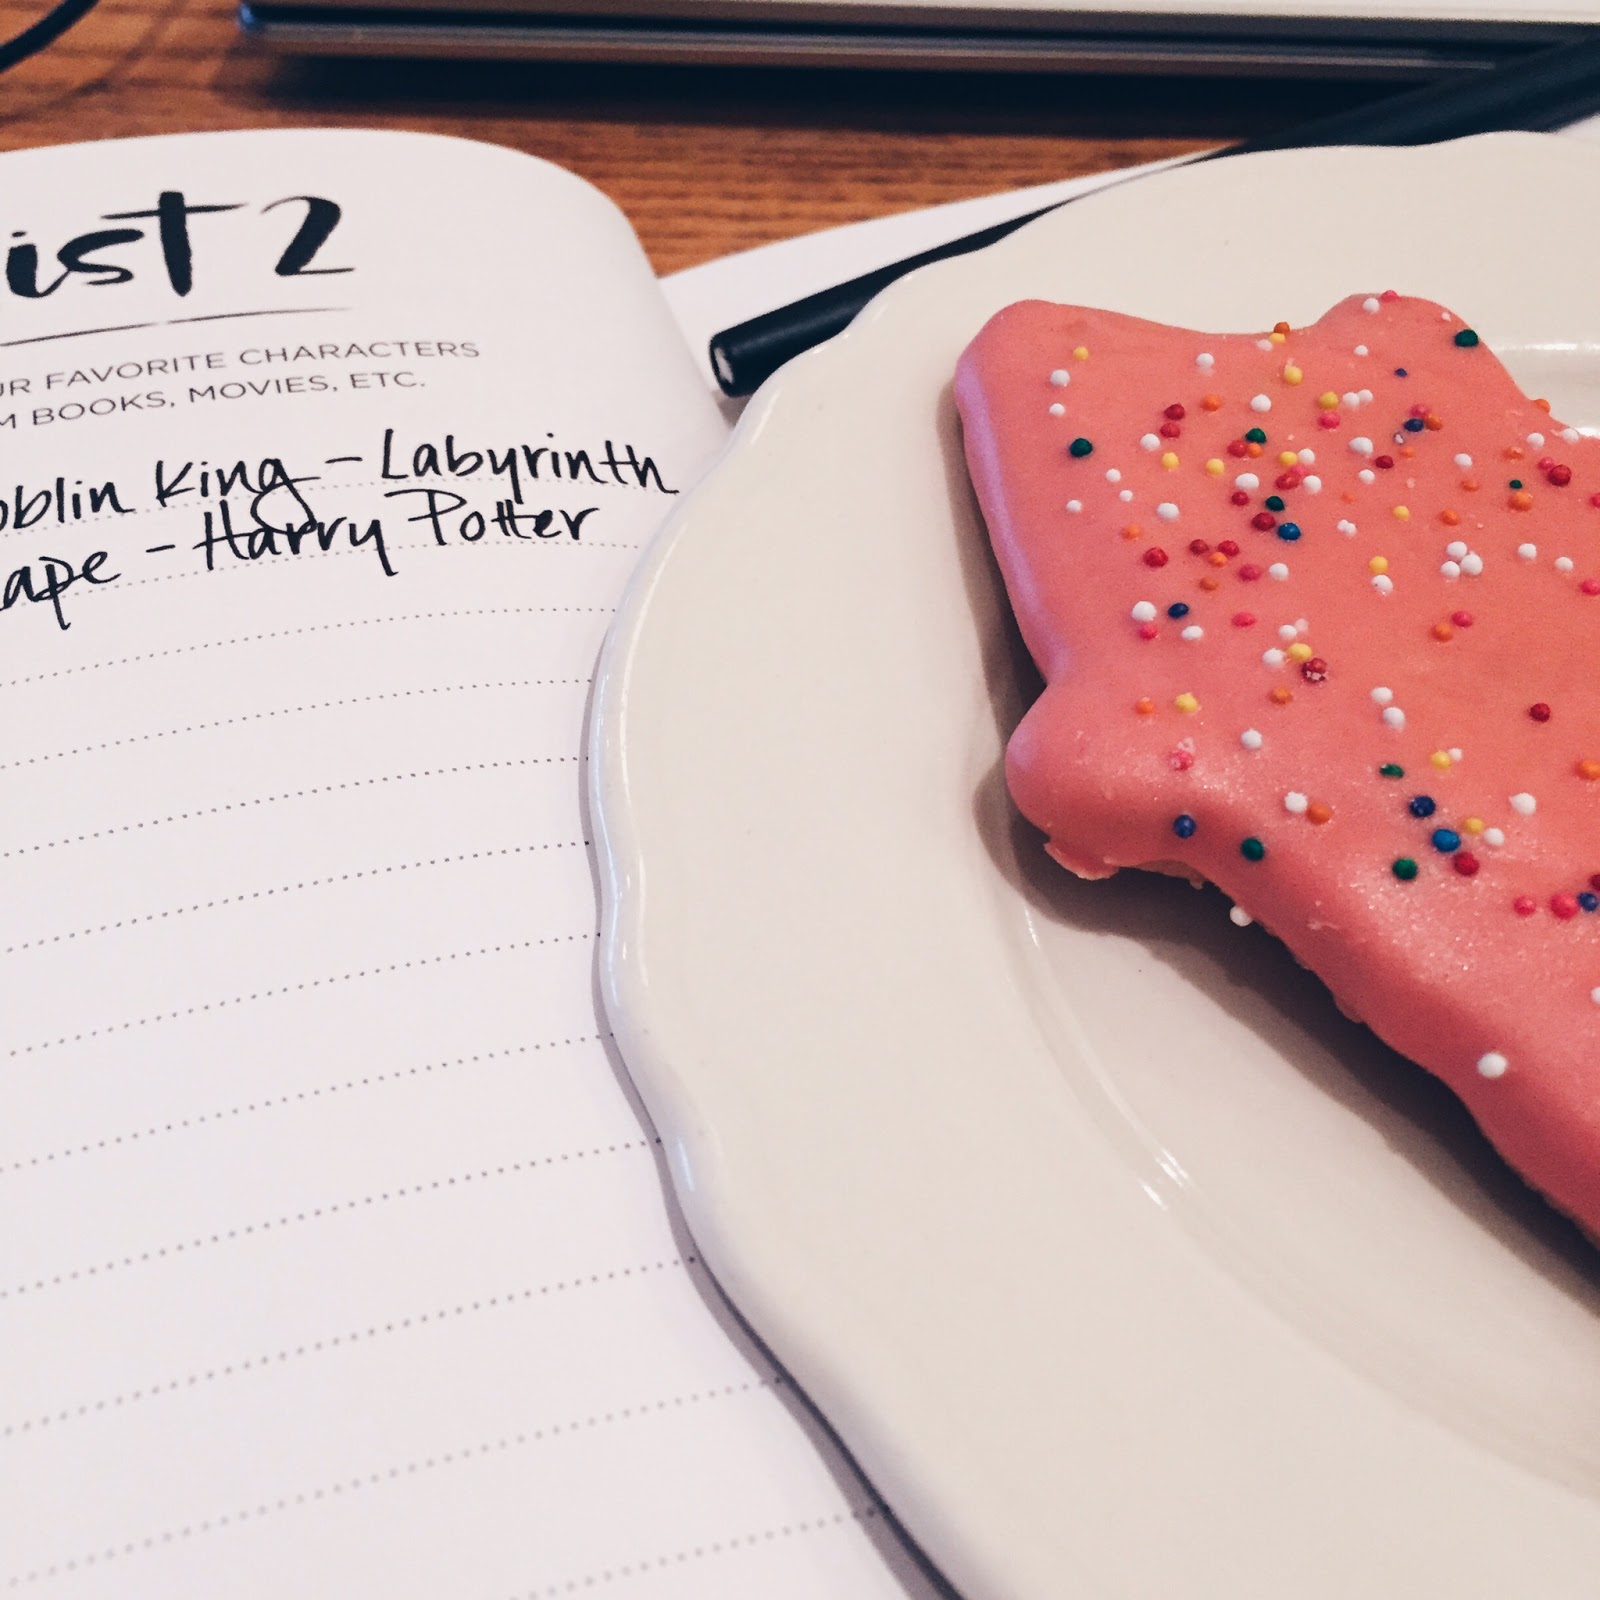 ist 2
UR FAVORITE CHARACTERS
M BOOKS, MOVIES, ETC.
oblin King - Labyrinth
ape - Harry Potter